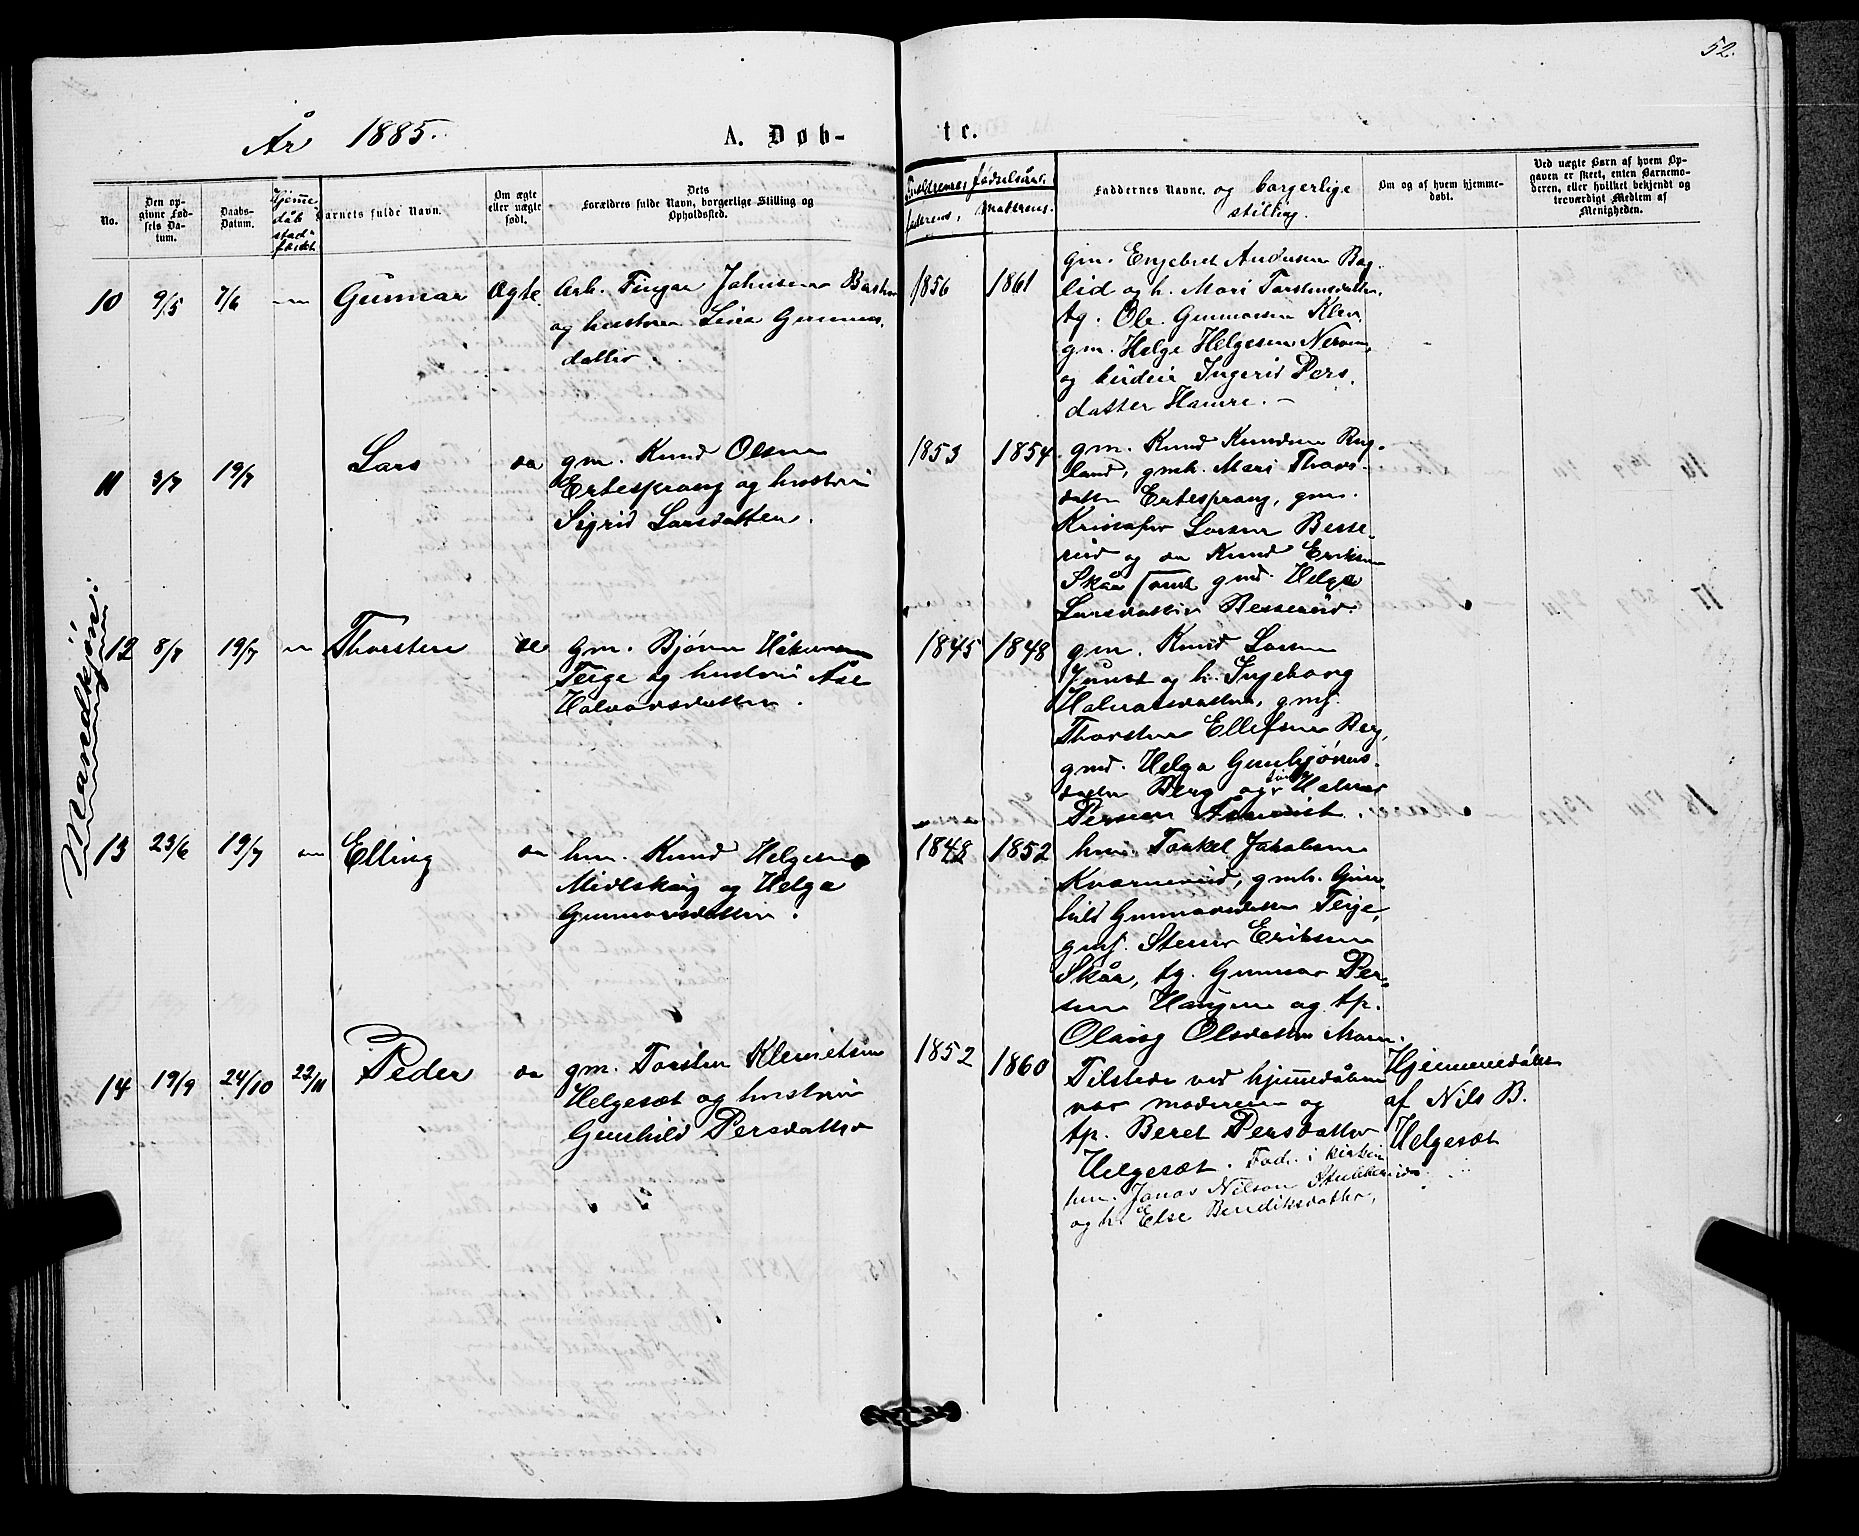 52.
År 1885.
A. Døb-
te.
No.
Den op-
givne Fød-
sels Da-
tum.
Daabs-
Datum.
Hjemme-
dåb
stad-
fæstet
Barnets fulde Navn.
Om ægte
eller uægte
født.
Dets
Forældres fulde Navn, borgerlige Stilling og
Opholdssted.
Forældrenes fødselsår.
faderens,
moderens.
Faddernes Navne, og borgerlige
stilling.
Om og af hvem hjemme-
døbt.
Ved uægte Børn af hvem Op-
gaven er skeet, enten Barnemo-
deren, eller hvilket bekjendt og
troværdigt Medlem af
Menigheden.
Mandkjön:
10
9/5
7/6
Gunnar
Ægte
Arb. Fingar Johnsen
og hustru Lina Gunnars-
datter
1856
1861
gm. Engebret Andersen Bag-
lid og h. Mari Torstensdatter,
tg. Ole Gunnarsen Klev,
gm. Helge Helgesen
og budeie Ingerid Pers-
datter Hamre. –
11
3/7
19/7
Lars
do
gm. Knud Olsen
Ertesprang og hustru
Sigrid Larsdatter.
1853
1854
gm. Knud Knudsen Rug-
land, gmk. Mari Thors-
datter Ertesprang, gm.
Kristofer Larsen Besse-
rud og do Knud Eriksen
Skåar samt gmd. Helga
Larsdatter Besserud.
12
8/7
19/7
Thorsten
do
gm. Bjørn Håkonsen
Teige og hustru Åse
Halvorsdatter.
1845
1848
gm. Knud Larsen
og h. Ingeborg
Halvorsdatter, gmf.
Thorsten Ellefsen Berg,
gmd. Helga Gunbjørns-
datter Berg og Halvor
Persen
13
23/6
19/7
Elling
do
hm. Knud Helgesen
Midtskaug og Helga
Gunnarsdatter.
1848
1852
hm. Torkel Jakobsen
Kværnerud, gmk. Gun-
hild Gunnarsdatter Teige,
gmf. Steinar Eriksen
Skåar, tg. Gunnar Per-
sen Haugen og tp.
Olaug Olsdatter Moen.
14
19/9
24/10
22/11
Peder
do
gm. Torsten Klemetsen
Helgesæt og hustru
Gunhild Persdatter
1852
1860
Tilstede ved hjemmedåben
var moderen og
tp. Beret Persdatter
Helgesæt. Fad. i kirken
hm. Jonas Nilsen Stubberud
og h. Else Bendiksdatter,
Hjemmedøbt
af Nils B.
Helgesæt